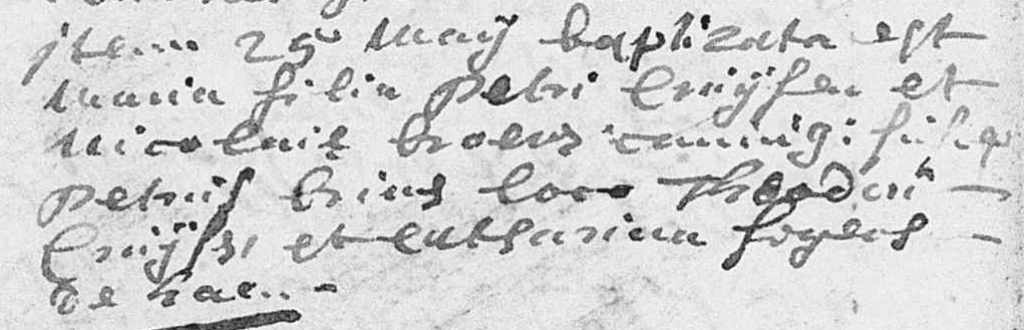 jtem 25 Maÿ baptizata est
Maria filia Petri Cruÿsen et
Nicolaie broers coniug: susce
petrus brins loco Theodori
Cruÿss et Catharina segers
de